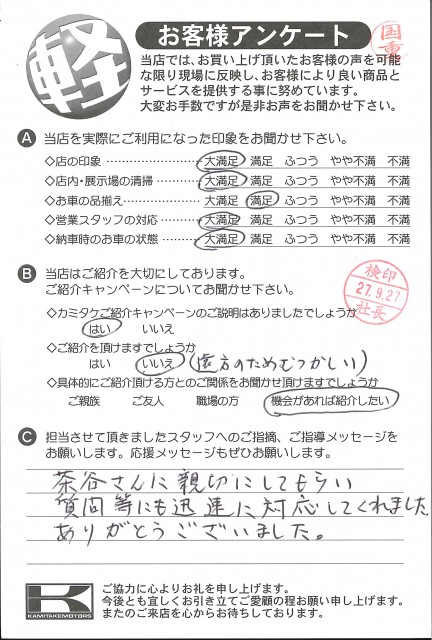 軽
お客様アンケート
国重
当店では、お買い上げ頂いたお客様の声を可能
な限り現場に反映し、お客様により良い商品と
サービスを提供する事に努めています。
大変お手数ですが是非お声をお聞かせ下さい。
A 当店を実際にご利用になった印象をお聞かせ下さい。
◇店の印象 ………… 大満足 満足 ふつう やや不満 不満
◇店内・展示場の清掃………… 大満足 満足 ふつう やや不満 不満
◇お車の品揃え………… 大満足 満足 ふつう やや不満 不満
◇営業スタッフの対応………… 大満足 満足 ふつう やや不満 不満
◇納車時のお車の状態………… 大満足 満足 ふつう やや不満 不満
B 当店はご紹介を大切にしております。
ご紹介キャンペーンについてお聞かせ下さい。
検印
27.9.27
社長
◇カミタケご紹介キャンペーンのご説明はありましたでしょうか
はい いいえ
◇ご紹介を頂けますでしょうか
はい いいえ (遠方のためむつかしい)
◇具体的にご紹介頂ける方とのご関係をお聞かせ頂けますでしょうか
ご親族 ご友人 職場の方 機会があれば紹介したい
C 担当させて頂きましたスタッフへのご指摘、ご指導メッセージを
お願いします。応援メッセージもぜひお願いします。
茶谷さんに親切にしてもらい
質問等にも迅速に対応してくれました。
ありがとうございました。
K
KAMITAKEMOTORS
ご協力に心よりお礼を申し上げます。
今後とも宜しくお引き立てご愛顧の程お願い申し上げます。
またのご来店を心からお待ちしております。